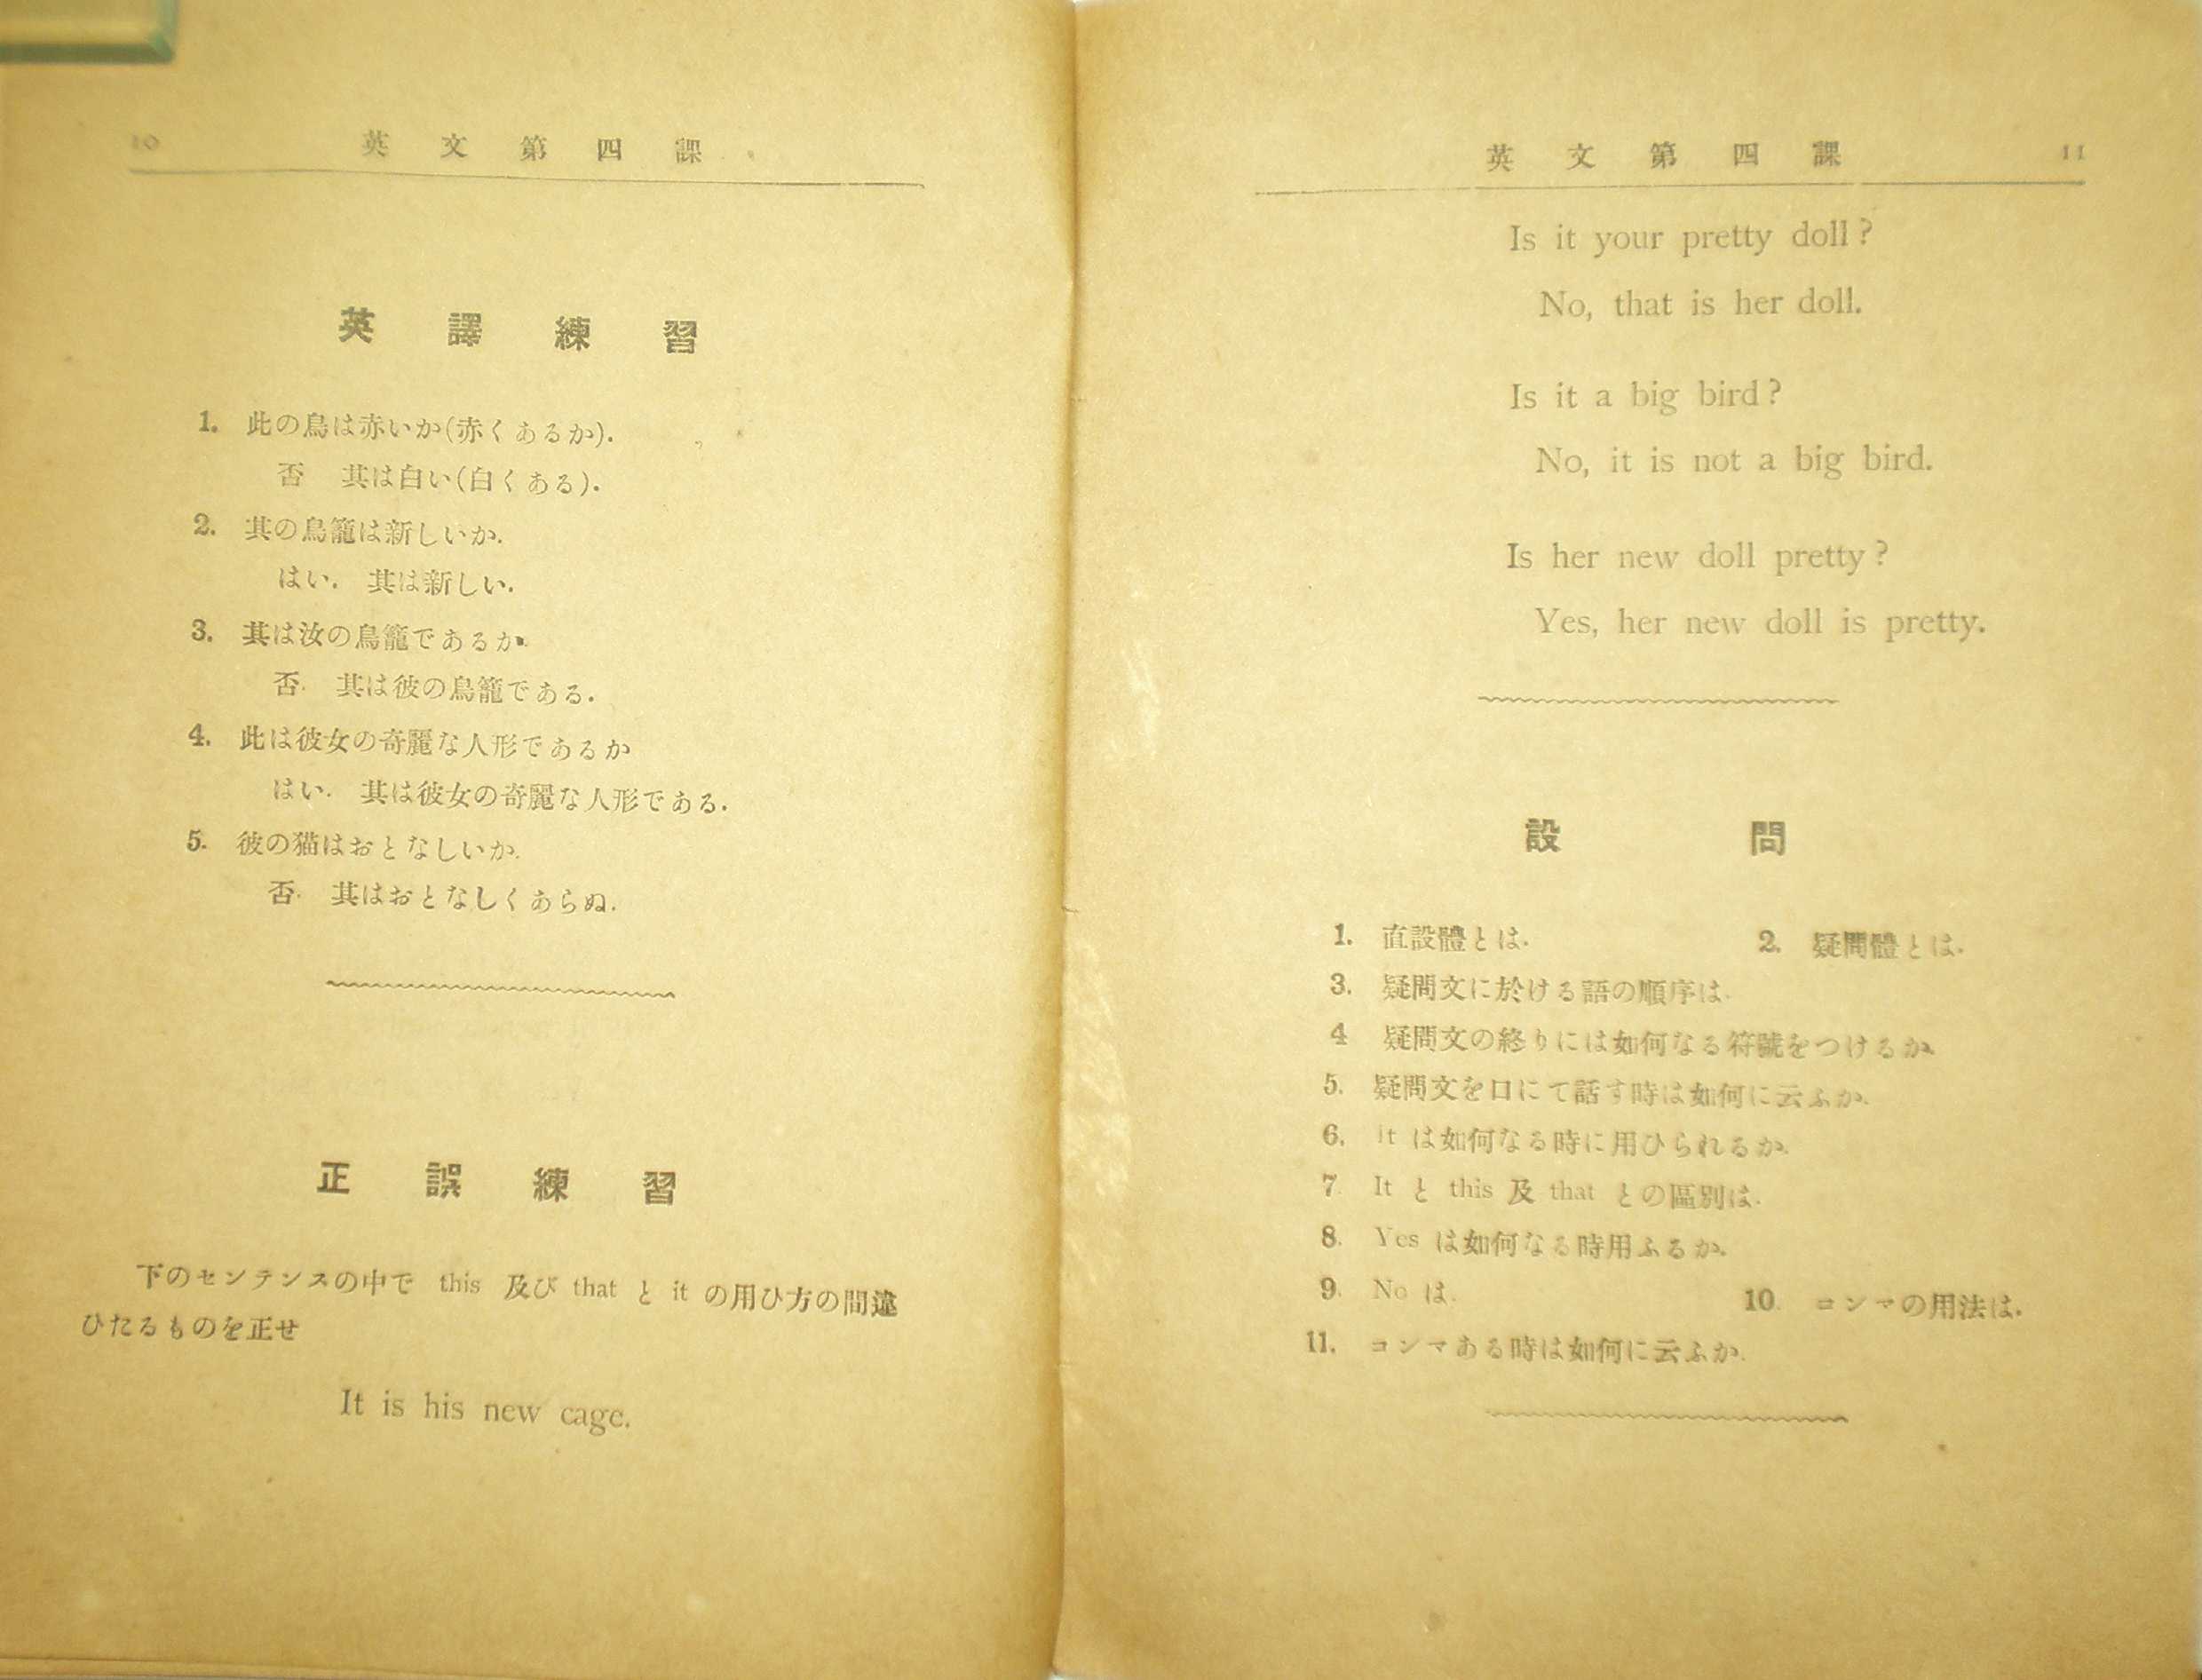 10 英文第四課
英譯練習
1. 此の鳥は赤いか(赤くあるか).
否 其は白い(白くある).
2. 其の鳥籠は新しいか.
はい. 其は新しい.
3. 其は汝の鳥籠であるか.
否. 其は彼の鳥籠である.
4. 此は彼女の奇麗な人形であるか
はい. 其は彼女の奇麗な人形である.
5. 彼の猫はおとなしいか.
否. 其はおとなしくあらぬ.
正誤練習
下のセンテンスの中で this 及び that と it の用ひ方の間違
ひたるものを正せ
It is his new cage.
英文第四課 11
Is it your pretty doll?
No, that is her doll.
Is it a big bird?
No, it is not a big bird.
Is her new doll pretty?
Yes, her new doll is pretty.
設問
1. 直設體とは. 2. 疑問體とは.
3. 疑問文に於ける語の順序は.
4 疑問文の終りには如何なる符號をつけるか.
5. 疑問文を口にて話す時は如何に云ふか.
6. it は如何なる時に用ひられるか.
7. It と this 及 that との區別は.
8. Yes は如何なる時用ふるか.
9. No は. 10. コンマの用法は.
11. コンマある時は如何に云ふか.